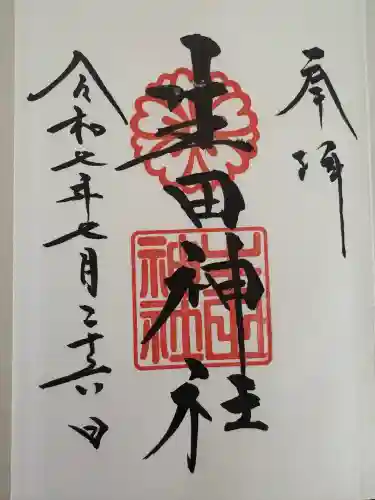 奉拝
生田神社
令和七年七月二十六日